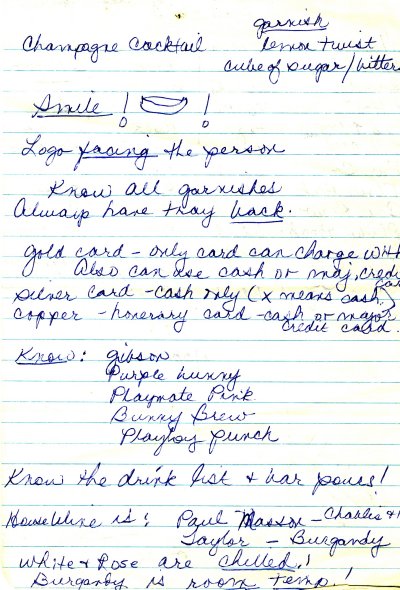 garnish
Champagne Cocktail lemon twist
cube of sugar/bitters
Smile! !
Logo facing the person
Know all garnishes
Always have tray back.
gold card - only card can charge with
Also can use cash or maj. credit
card
silver card - cash only (x means cash)
copper - honerary card - cash or major
credit card.
Know: gibson
Purple bunny
Playmate Pink
Bunny Brew
Playboy punch
Know the drink list + bar pours!
House Wine is: Paul Masson - Charlis +
Taylor - Burgandy
White + Rose are chilled!
Burgandy is room temp!